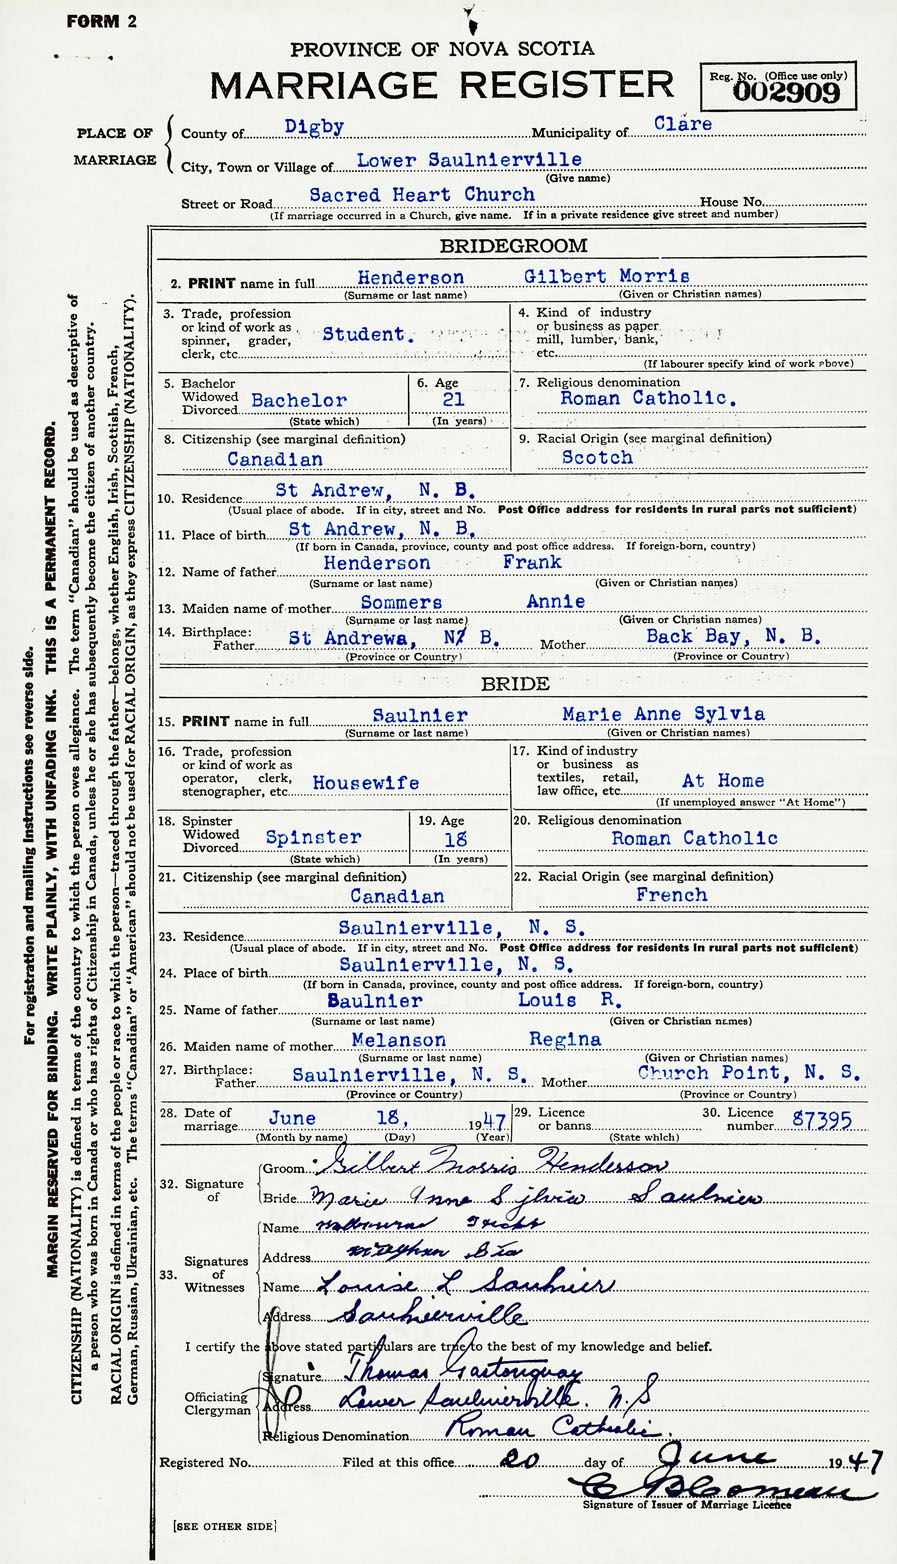 FORM 2
PROVINCE OF NOVA SCOTIA
MARRIAGE REGISTER
Reg. No. (Office use only)
002909
PLACE OF MARRIAGE
County of Digby Municipality of Clare
City, Town or Village of Lower Saulnierville
(Give name)
Street or Road Sacred Heart Church House No.
(If marriage occurred in a Church, give name. If in a private residence give street and number)
BRIDEGROOM
2. PRINT name in full Henderson Gilbert Morris
(Surname or last name) (Given or Christian names)
3. Trade, profession or kind of work as spinner, grader, clerk, etc. Student.
4. Kind of industry or business as paper mill, lumber, bank, etc.
(If labourer specify kind of work above)
5. Bachelor Widowed Divorced Bachelor
(State which)
6. Age 21
(In years)
7. Religious denomination
Roman Catholic.
8. Citizenship (see marginal definition)
Canadian
9. Racial Origin (see marginal definition)
Scotch
10. Residence St Andrew, N. B.
(Usual place of abode. If in city, street and No. Post Office address for residents in rural parts not sufficient)
11. Place of birth St Andrew, N. B.
(If born in Canada, province, county and post office address. If foreign-born, country)
12. Name of father Henderson Frank
(Surname or last name) (Given or Christian names)
13. Maiden name of mother Sommers Annie
(Surname or last name) (Given or Christian names)
14. Birthplace: Father St Andrewa, N/ B. Mother Back Bay, N. B.
(Province or Country) (Province or Country)
BRIDE
15. PRINT name in full Saulnier Marie Anne Sylvia
(Surname or last name) (Given or Christian names)
16. Trade, profession or kind of work as operator, clerk, stenographer, etc. Housewife
17. Kind of industry or business as textiles, retail, law office, etc. At Home
(If unemployed answer "At Home")
18. Spinster Widowed Divorced Spinster
(State which)
19. Age 18
(In years)
20. Religious denomination
Roman Catholic
21. Citizenship (see marginal definition)
Canadian
22. Racial Origin (see marginal definition)
French
23. Residence Saulnierville, N. S.
(Usual place of abode. If in city, street and No. Post Office address for residents in rural parts not sufficient)
24. Place of birth Saulnierville, N. S.
(If born in Canada, province, county and post office address. If foreign-born, country)
25. Name of father Saulnier Louis R.
(Surname or last name) (Given or Christian names)
26. Maiden name of mother Melanson Regina
(Surname or last name) (Given or Christian names)
27. Birthplace: Father Saulnierville, N. S. Mother Church Point, N. S.
(Province or Country) (Province or Country)
28. Date of marriage June 18, 1947
(Month by name) (Day) (Year)
29. Licence or banns
(State which)
30. Licence number 87395
32. Signature of
Groom Gilbert Morris Henderson
Bride Marie Anne Sylvia Saulnier
33. Signatures of Witnesses
Name
Address
Name Louise L Saulnier
Address Saulnierville
I certify the above stated particulars are true to the best of my knowledge and belief.
Officiating Clergyman
Signature Thomas Gastonguay
Address Lower Saulnierville. N.S
Religious Denomination Roman Catholic.
Registered No. Filed at this office 20 day of June 1947
Signature of Issuer of Marriage Licence
[SEE OTHER SIDE]
For registration and mailing instructions see reverse side.
MARGIN RESERVED FOR BINDING. WRITE PLAINLY, WITH UNFADING INK. THIS IS A PERMANENT RECORD.
CITIZENSHIP (NATIONALITY) is defined in terms of the country to which the person owes allegiance. The term "Canadian" should be used as descriptive of
a person who was born in Canada or who has rights of Citizenship in Canada, unless he or she has subsequently become the citizen of another country.
RACIAL ORIGIN is defined in terms of the people or race to which the person—traced through the father—belongs, whether English, Irish, Scottish, French,
German, Russian, Ukrainian, etc. The terms "Canadian" or "American" should not be used for RACIAL ORIGIN, as they express CITIZENSHIP (NATIONALITY).